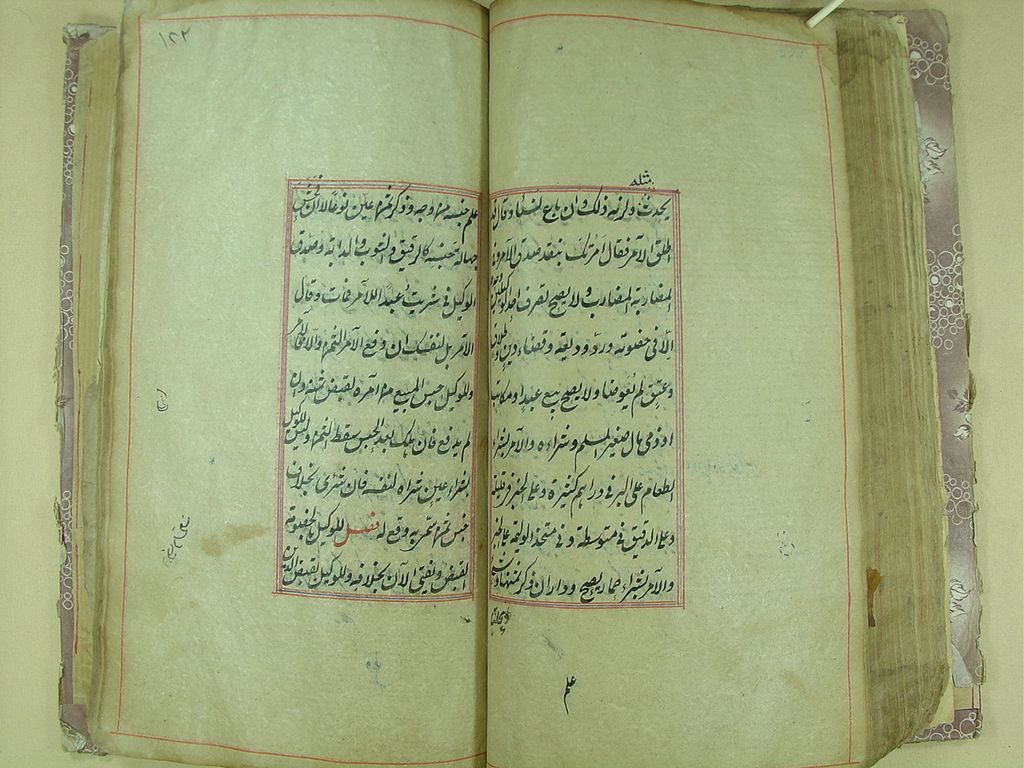 مثله
يحدث ولزمه ذلك وان باع نسيئا وقال
اطلق الآمر فقال امرتك بنقد صدق الآمر وفي
المضاربة المضارب ولا يصح تصرف احد الوكيلين
الا في خصومة ورد وديعة وقضاء دين وطلاق
وعتق لم يعوضا ولا يصح بيع عبد او مكاتب
او ذمي مال صغير المسلم وشراءه والآمر بشراء
الطعام على البر في دراهم كثيرة وعلى الخبز في قليلة
وعلى الدقيق في متوسطة وفي متخذ الوليمة على الخبز
والآمر بشراء حمار يصح ودار ان ذكر ثمنها
علم
١٢٢
علم جنسه من وجه وذكر ثمن عين نوعا لا ان فحش
جهالة جنسه كالرقيق والثوب والدابة وصدق
الوكيل في شريت عبدا للآمر فمات وقال
الآمر بل لنفسك ان دفع الآمر الثمن والا فالآمر
وللوكيل حبس المبيع من آمره لقبض ثمنه وان
لم يدفع فان هلك بعد الحبس سقط الثمن وليس للوكيل
بشراء عين شراه لنفسه فان شرى بخلاف
جنس ثمن سمي به وقع له فصل للوكيل بالخصومة
القبض ويفتى الآن بخلافه وللوكيل بقبض الدين